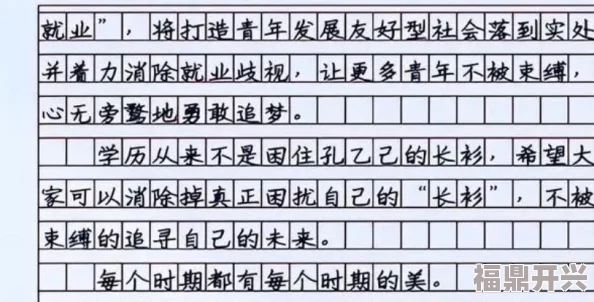 就业”，将打造青年发展友好型社会落到实处
并着力消除就业歧视，让更多青年不被束缚，
心无旁骛地勇敢追梦。
学历从来不是困住孔乙己的长衫，希望大
家可以消除掉真正困扰自己的“长衫”，不被
束缚的追寻自己的未来。
每个时期都有每个时期的美。
福鼎开兴